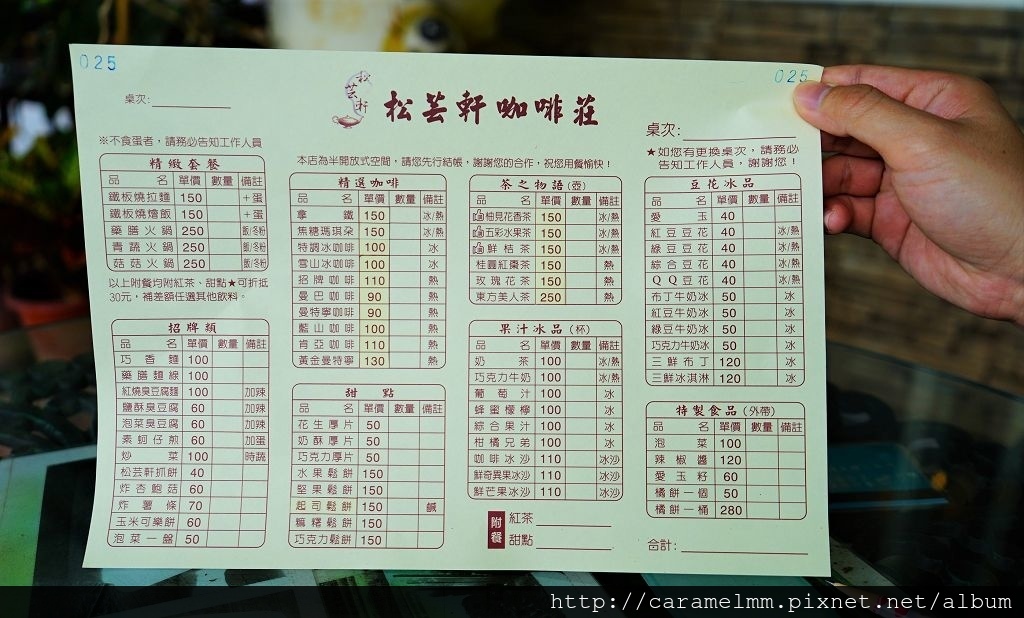 025
025
桌次:
松芸軒
松芸軒咖啡莊
桌次:
※不食蛋者，請務必告知工作人員
本店為半開放式空間，請您先行結帳，謝謝您的合作，祝您用餐愉快！
★如您有更換桌次，請務必
告知工作人員，謝謝您！
精緻套餐
品 名 單價 數量 備註
鐵板燒拉麵 150 +蛋
鐵板燒燴飯 150 +蛋
藥膳火鍋 250 飯/冬粉
青蔬火鍋 250 飯/冬粉
菇菇火鍋 250 飯/冬粉
以上附餐均附紅茶、甜點★可折抵
30元，補差額任選其他飲料。
招牌類
品 名 單價 數量 備註
巧香麵 100
藥膳麵線 100
紅燒臭豆腐麵 100 加辣
鹽酥臭豆腐 60 加辣
泡菜臭豆腐 60 加辣
素蚵仔煎 60 加蛋
炒菜 100 時蔬
松芸軒抓餅 40
炸杏鮑菇 60
炸薯條 70
玉米可樂餅 60
泡菜一盤 50
精選咖啡
品 名 單價 數量 備註
拿鐵 150 冰/熱
焦糖瑪琪朵 150 冰/熱
特調冰咖啡 100 冰
雪山冰咖啡 100 冰
招牌咖啡 110 熱
曼巴咖啡 90 熱
曼特寧咖啡 90 熱
藍山咖啡 100 熱
肯亞咖啡 110 熱
黃金曼特寧 130 熱
甜點
品 名 單價 數量 備註
花生厚片 50
奶酥厚片 50
巧克力厚片 50
水果鬆餅 150
堅果鬆餅 150
起司鬆餅 150 鹹
麻糬鬆餅 150
巧克力鬆餅 150
茶之物語(壺)
品 名 單價 數量 備註
柚見花香茶 150 冰/熱
五彩水果茶 150 冰/熱
鮮桔茶 150 冰/熱
桂圓紅棗茶 150 熱
玫瑰花茶 150 熱
東方美人茶 250 熱
果汁冰品(杯)
品 名 單價 數量 備註
奶茶 100 冰/熱
巧克力牛奶 100 冰/熱
葡萄汁 100 冰
蜂蜜檸檬 100 冰
綜合果汁 100 冰
柑橘兄弟 100 冰
咖啡冰沙 110 冰沙
鮮奇異果冰沙 110 冰沙
鮮芒果冰沙 110 冰沙
附餐
紅茶
甜點
豆花冰品
品 名 單價 數量 備註
愛玉 40
紅豆豆花 40 冰/熱
綠豆豆花 40 冰/熱
綜合豆花 40 冰/熱
QQ豆花 40 冰/熱
布丁牛奶冰 50 冰
紅豆牛奶冰 50 冰
綠豆牛奶冰 50 冰
巧克力牛奶冰 50 冰
三鮮布丁 120 冰
三鮮冰淇淋 120 冰
特製食品(外帶)
品 名 單價 數量 備註
泡菜 100
辣椒醬 120
愛玉籽 60
橘餅一個 50
橘餅一桶 280
合計:
http://caramelmm.pixnet.net/album